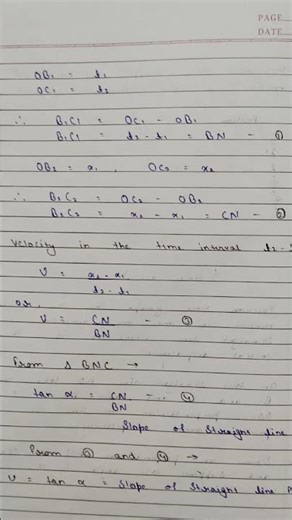 PAGE
DATE
OB₁ = t₁
OC₁ = t₂
∴ B₁C₁ = OC₁ - OB₁
B₁C₁ = t₂ - t₁ = BN - ①
OB₂ = x₁ , OC₂ = x₂
∴ B₂C₂ = OC₂ - OB₂
B₂C₂ = x₂ - x₁ = CN - ②
Velocity in the time interval t₂ -
V = x₂ - x₁
t₂ - t₁
or
V = CN - ③
BN
From Δ BNC →
tan α = CN - ④
BN
Slope of straight line
From ③ and ④ →
V = tan α = Slope of straight line